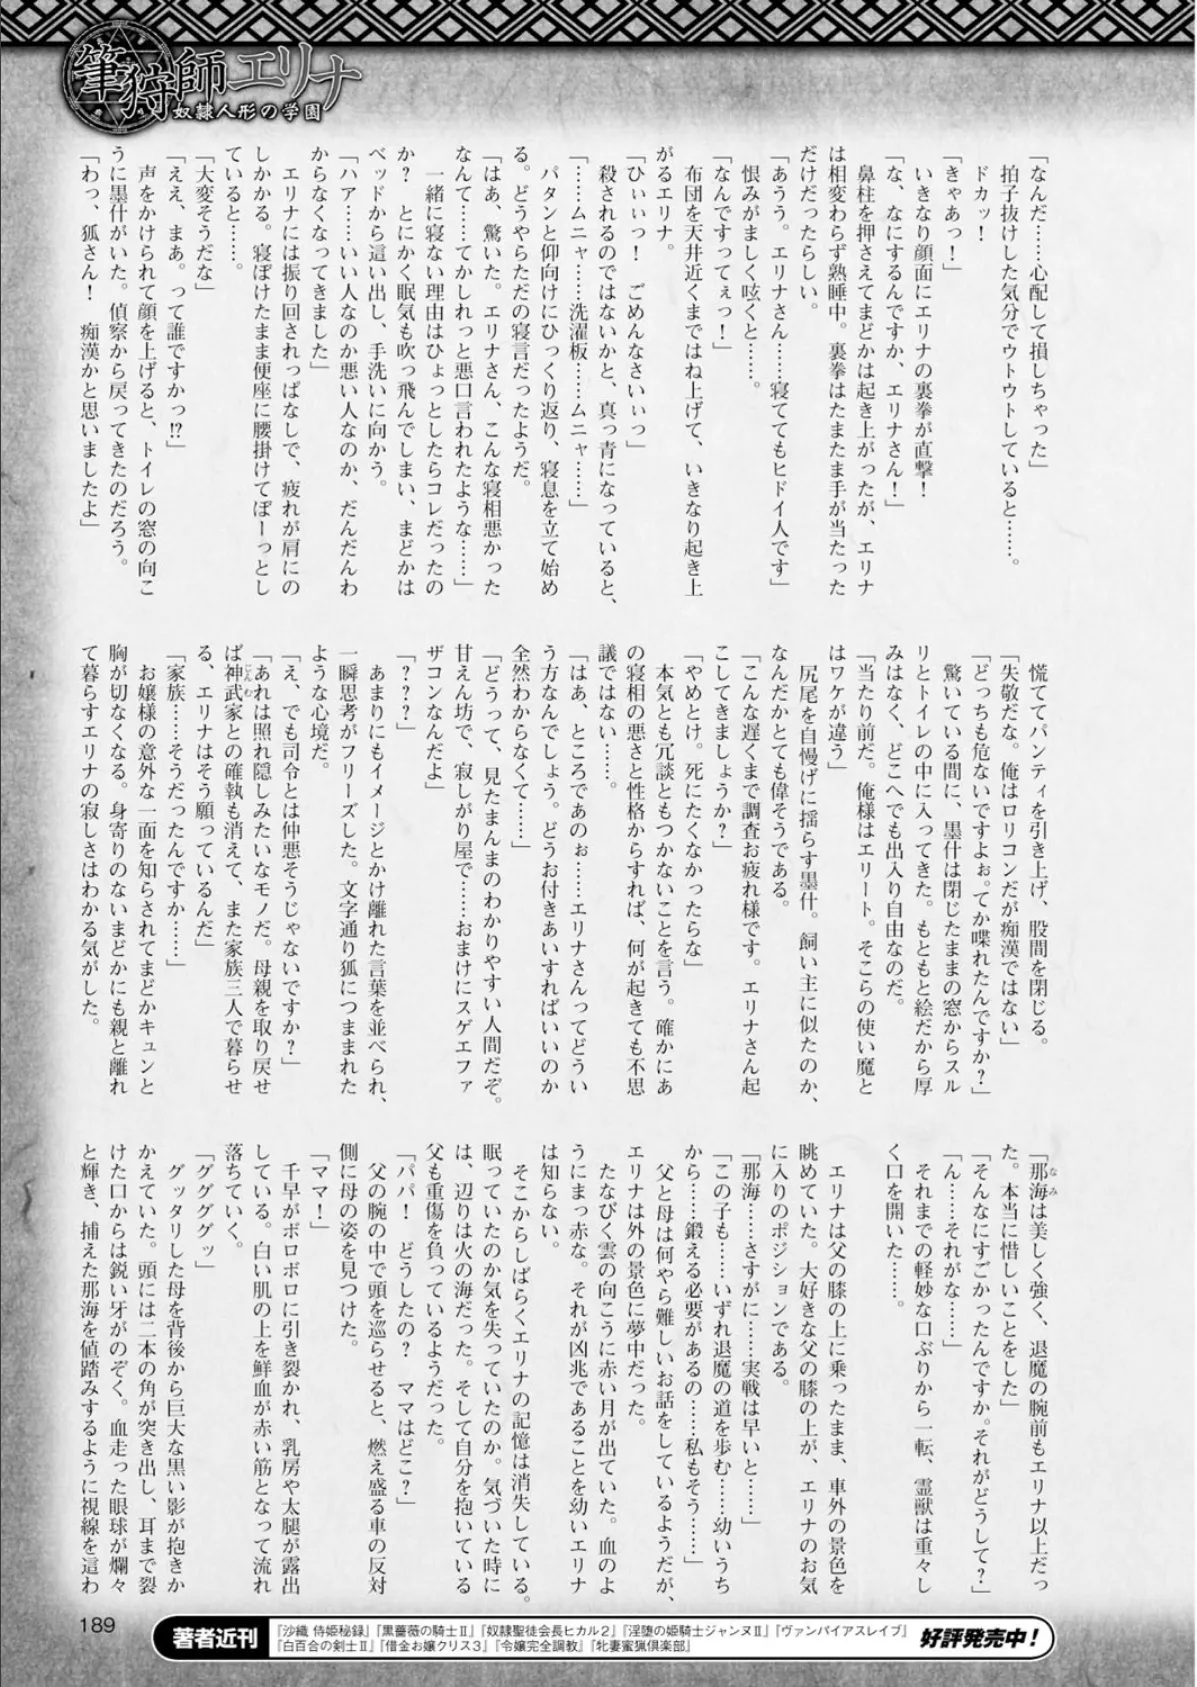 筆狩師エリナ
奴隷人形の学園
「なんだ……心配して損しちゃった」
拍子抜けした気分でウトウトしていると……。
ドカッ！
「きゃあっ！」
いきなり顔面にエリナの裏拳が直撃！
「な、なにするんですか、エリナさん！」
鼻柱を押さえてまどかは起き上がったが、エリナ
は相変わらず熟睡中。裏拳はたまたま手が当たった
だけだったらしい。
「あうう。エリナさん……寝ててもヒドイ人です」
恨みがましく呟くと……。
「なんですってぇっ！」
布団を天井近くまではね上げて、いきなり起き上
がるエリナ。
「ひぃぃっ！　ごめんなさいぃっ」
殺されるのではないかと、真っ青になっていると、
「……ムニャ……洗濯板……ムニャ……」
パタンと仰向けにひっくり返り、寝息を立て始め
る。どうやらただの寝言だったようだ。
「はあ、驚いた。エリナさん、こんな寝相悪かった
なんて……てかしれっと悪口言われたような……」
一緒に寝ない理由はひょっとしたらコレだったの
か？　とにかく眠気も吹っ飛んでしまい、まどかは
ベッドから這い出し、手洗いに向かう。
「ハア……いい人なのか悪い人なのか、だんだんわ
からなくなってきました」
エリナには振り回されっぱなしで、疲れが肩にの
しかかる。寝ぼけたまま便座に腰掛けてぼーっとし
ていると……。
「大変そうだな」
「ええ、まあ。って誰ですかっ!?」
声をかけられて顔を上げると、トイレの窓の向こ
うに墨什がいた。偵察から戻ってきたのだろう。
「わっ、狐さん！　痴漢かと思いましたよ」
慌ててパンティを引き上げ、股間を閉じる。
「失敬だな。俺はロリコンだが痴漢ではない」
「どっちも危ないですよぉ。てか喋れたんですか？」
驚いている間に、墨什は閉じたままの窓からスル
リとトイレの中に入ってきた。もともと絵だから厚
みはなく、どこへでも出入り自由なのだ。
「当たり前だ。俺様はエリート。そこらの使い魔と
はワケが違う」
尻尾を自慢げに揺らす墨什。飼い主に似たのか、
なんだかとても偉そうである。
「こんな遅くまで調査お疲れ様です。エリナさん起
こしてきましょうか？」
「やめとけ。死にたくなかったらな」
本気とも冗談ともつかないことを言う。確かにあ
の寝相の悪さと性格からすれば、何が起きても不思
議ではない……。
「はあ、ところであのぉ……エリナさんってどうい
う方なんでしょう。どうお付きあいすればいいのか
全然わからなくて……」
「どうって、見たまんまのわかりやすい人間だぞ。
甘えん坊で、寂しがり屋で……おまけにスゲエファ
ザコンなんだよ」
「？？？」
あまりにもイメージとかけ離れた言葉を並べられ、
一瞬思考がフリーズした。文字通り狐につままれた
ような心境だ。
「え、でも司令とは仲悪そうじゃないですか？」
「あれは照れ隠しみたいなモノだ。母親を取り戻せ
ば神武家との確執も消えて、また家族三人で暮らせ
じんむ
る、エリナはそう願っているんだ」
「家族……そうだったんですか……」
お嬢様の意外な一面を知らされてまどかキュンと
胸が切なくなる。身寄りのないまどかにも親と離れ
て暮らすエリナの寂しさはわかる気がした。
「那海は美しく強く、退魔の腕前もエリナ以上だっ
なみ
た。本当に惜しいことをした」
「そんなにすごかったんですか。それがどうして？」
「ん……それがな……」
それまでの軽妙な口ぶりから一転、霊獣は重々し
く口を開いた……。
エリナは父の膝の上に乗ったまま、車外の景色を
眺めていた。大好きな父の膝の上が、エリナのお気
に入りのポジションである。
「那海……さすがに……実戦は早いと……」
「この子も……いずれ退魔の道を歩む……幼いうち
から……鍛える必要があるの……私もそう……」
父と母は何やら難しいお話をしているようだが、
エリナは外の景色に夢中だった。
たなびく雲の向こうに赤い月が出ていた。血のよ
うにまっ赤な。それが凶兆であることを幼いエリナ
は知らない。
そこからしばらくエリナの記憶は消失している。
眠っていたのか気を失っていたのか。気づいた時に
は、辺りは火の海だった。そして自分を抱いている
父も重傷を負っているようだった。
「パパ！　どうしたの？　ママはどこ？」
父の腕の中で頭を巡らせると、燃え盛る車の反対
側に母の姿を見つけた。
「ママ！」
千早がボロボロに引き裂かれ、乳房や太腿が露出
している。白い肌の上を鮮血が赤い筋となって流れ
落ちていく。
「ググググッ」
グッタリした母を背後から巨大な黒い影が抱きか
かえていた。頭には二本の角が突き出し、耳まで裂
けた口からは鋭い牙がのぞく。血走った眼球が爛々
と輝き、捕えた那海を値踏みするように視線を這わ
189
著者近刊
『沙織 侍姫秘録』『黒薔薇の騎士Ⅱ』『奴隷聖徒会長ヒカル２』『淫堕の姫騎士ジャンヌⅡ』『ヴァンパイアスレイブ』
『白百合の剣士Ⅱ』『借金お嬢クリス３』『令嬢完全調教』『牝妻蜜猟倶楽部』
好評発売中！